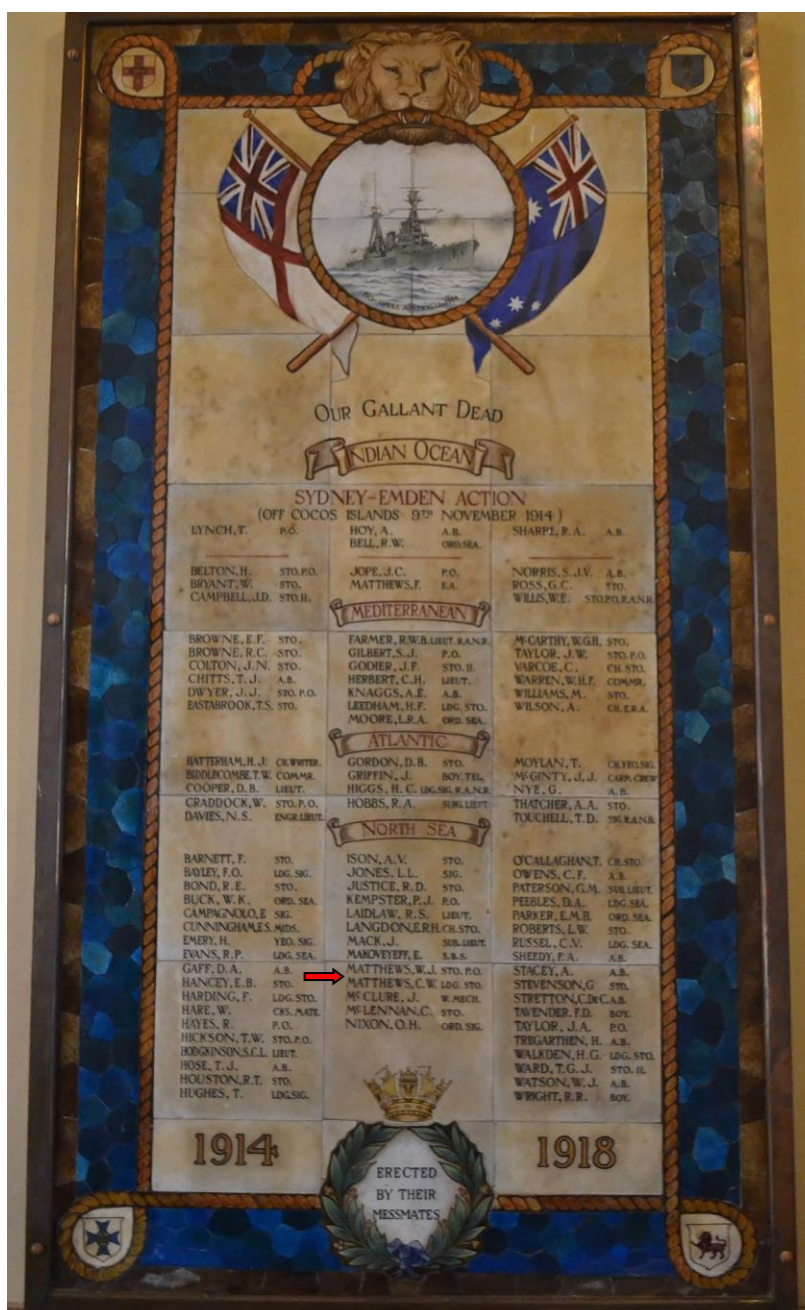 OUR GALLANT DEAD
INDIAN OCEAN
SYDNEY-EMDEN ACTION
(OFF COCOS ISLANDS 9TH NOVEMBER 1914)
LYNCH, T. P.O.
HOY, A. A.B.
BELL, R.W. ORD.SEA.
SHARPE, R.A. A.B.
BELTON, H. STO.P.O.
BRYANT, W. STO.
CAMPBELL, J.D. STO.II.
JOPE, J.C. P.O.
MATTHEWS, F. E.A.
NORRIS, S.J.V. A.B.
ROSS, G.C. STO.
WILLIS, W.E. STO.P.O.R.A.N.R.
MEDITERRANEAN
BROWNE, E.F. STO.
BROWNE, R.C. STO.
COLTON, J.N. STO.
CHITTS, T.J. A.B.
DWYER, J.J. STO.P.O.
EASTABROOK, T.S. STO.
FARMER, R.W.B. LIEUT.R.A.N.R.
GILBERT, S.J. P.O.
GODIER, J.F. STO.II.
HERBERT, C.H. LIEUT.
KNAGGS, A.E. A.B.
LEEDHAM, H.F. LDG.STO.
MOORE, L.R.A. ORD.SEA.
McCARTHY, W.G.H. STO.
TAYLOR, J.W. STO.P.O.
VARCOE, C. CH.STO.
WARREN, W.H.F. COMMR.
WILLIAMS, M. STO.
WILSON, A. CH.E.R.A.
ATLANTIC
BATTERHAM, H.J. CH.WRITER.
BIDDLECOMBE, T.W. COMMR.
COOPER, D.B. LIEUT.
CRADDOCK, W. STO.P.O.
DAVIES, N.S. ENGR.LIEUT.
GORDON, D.B. STO.
GRIFFIN, J. BOY.TEL.
HIGGS, H.C. LDG.SIG.R.A.N.R.
HOBBS, R.A. SURG.LIEUT.
MOYLAN, T. CH.YEO.SIG.
McGINTY, J.J. CARP.CREW
NYE, G. A.B.
THATCHER, A.A. STO.
TOUCHELL, T.D. SIG.R.A.N.R.
NORTH SEA
BARNETT, F. STO.
BAYLEY, F.O. LDG.SIG.
BOND, R.E. STO.
BUCK, W.K. ORD.SEA.
CAMPAGNOLO, E SIG.
CUNNINGHAM, E.S. MIDS.
EMERY, H. YEO.SIG.
EVANS, R.P. LDG.SEA.
GAFF, D.A. A.B.
HANCEY, E.B. STO.
HARDING, F. LDG.STO.
HARE, W. CKS.MATE.
HAYES, R. P.O.
HICKSON, T.W. STO.P.O.
HODGKINSON, S.C.L. LIEUT.
HOSE, T.J. A.B.
HOUSTON, R.T. STO.
HUGHES, T. LDG.SIG.
ISON, A.V. STO.
JONES, L.L. SIG.
JUSTICE, R.D. STO.
KEMPSTER, P.J. P.O.
LAIDLAW, R.S. LIEUT.
LANGDON, E.R.H. CH.STO.
MACK, J. SUB.LIEUT.
MAKOVEYEFF, E. S.B.S.
MATTHEWS, W.J. STO.P.O.
MATTHEWS, C.W. LDG.STO.
McCLURE, J. W.MECH.
McLENNAN, C. STO.
NIXON, O.H. ORD.SIG.
O'CALLAGHAN, T. CH.STO.
OWENS, C.F. A.B.
PATERSON, G.M. SUB.LIEUT.
PEEBLES, D.A. LDG.SEA.
PARKER, E.M.B. ORD.SEA.
ROBERTS, L.W. STO.
RUSSEL, C.V. LDG.SEA.
SHEEDY, P.A. A.B.
STACEY, A. A.B.
STEVENSON, G STO.
STRETTON, C.De C. A.B.
TAVENDER, F.D. BOY.
TAYLOR, J.A. P.O.
TREGARTHEN, H. A.B.
WALKDEN, H.G. LDG.STO.
WARD, T.G.J. STO.II.
WATSON, W.J. A.B.
WRIGHT, R.R. BOY.
1914
ERECTED
BY THEIR
MESSMATES
1918